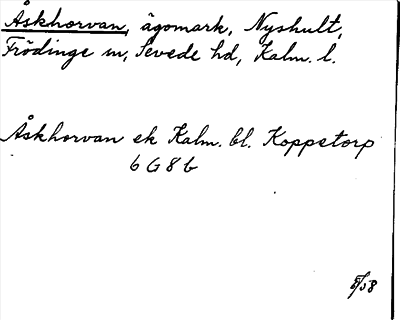 Åskhorvan, ägomark, Nyshult,
Frödinge sn, Sevede hd, Kalm. l.
Åskhorvan ek Kalm. bl. Koppetorp
6 G 8 b